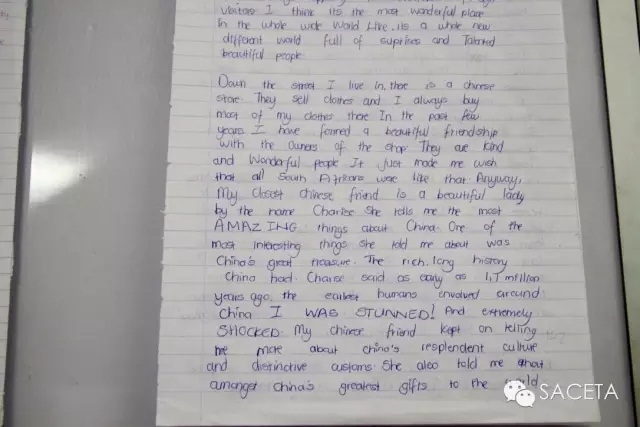 visitors I think its the most wonderful place
In the whole wide World Like. its a whole new
different world full of suprises and Talented
beautiful people
Down the street I live in, there is a chinese
store. They sell clothes and I always buy
most of my clothes there In the past few
years I have formed a beautiful friendship
with the owners of the shop They are kind
and Wonderful people It just made me wish
that all South Africans were like that. Anyway,
My closest chinese friend is a beautiful lady
by the name Charise She tells me the most
AMAZING things about China. One of the
most interesting things she told me about was
China's great treasure. The rich, long history
China had. Charise said as early as 1,7 million
years ago, the earliest humans envolved around
China I WAS STUNNED! And extremely
SHOCKED. My chinese friend kept on telling
me more about china's resplendent culture
and distinctive customs. She also told me about
amongst China's greatest gifts to the world
SACETA